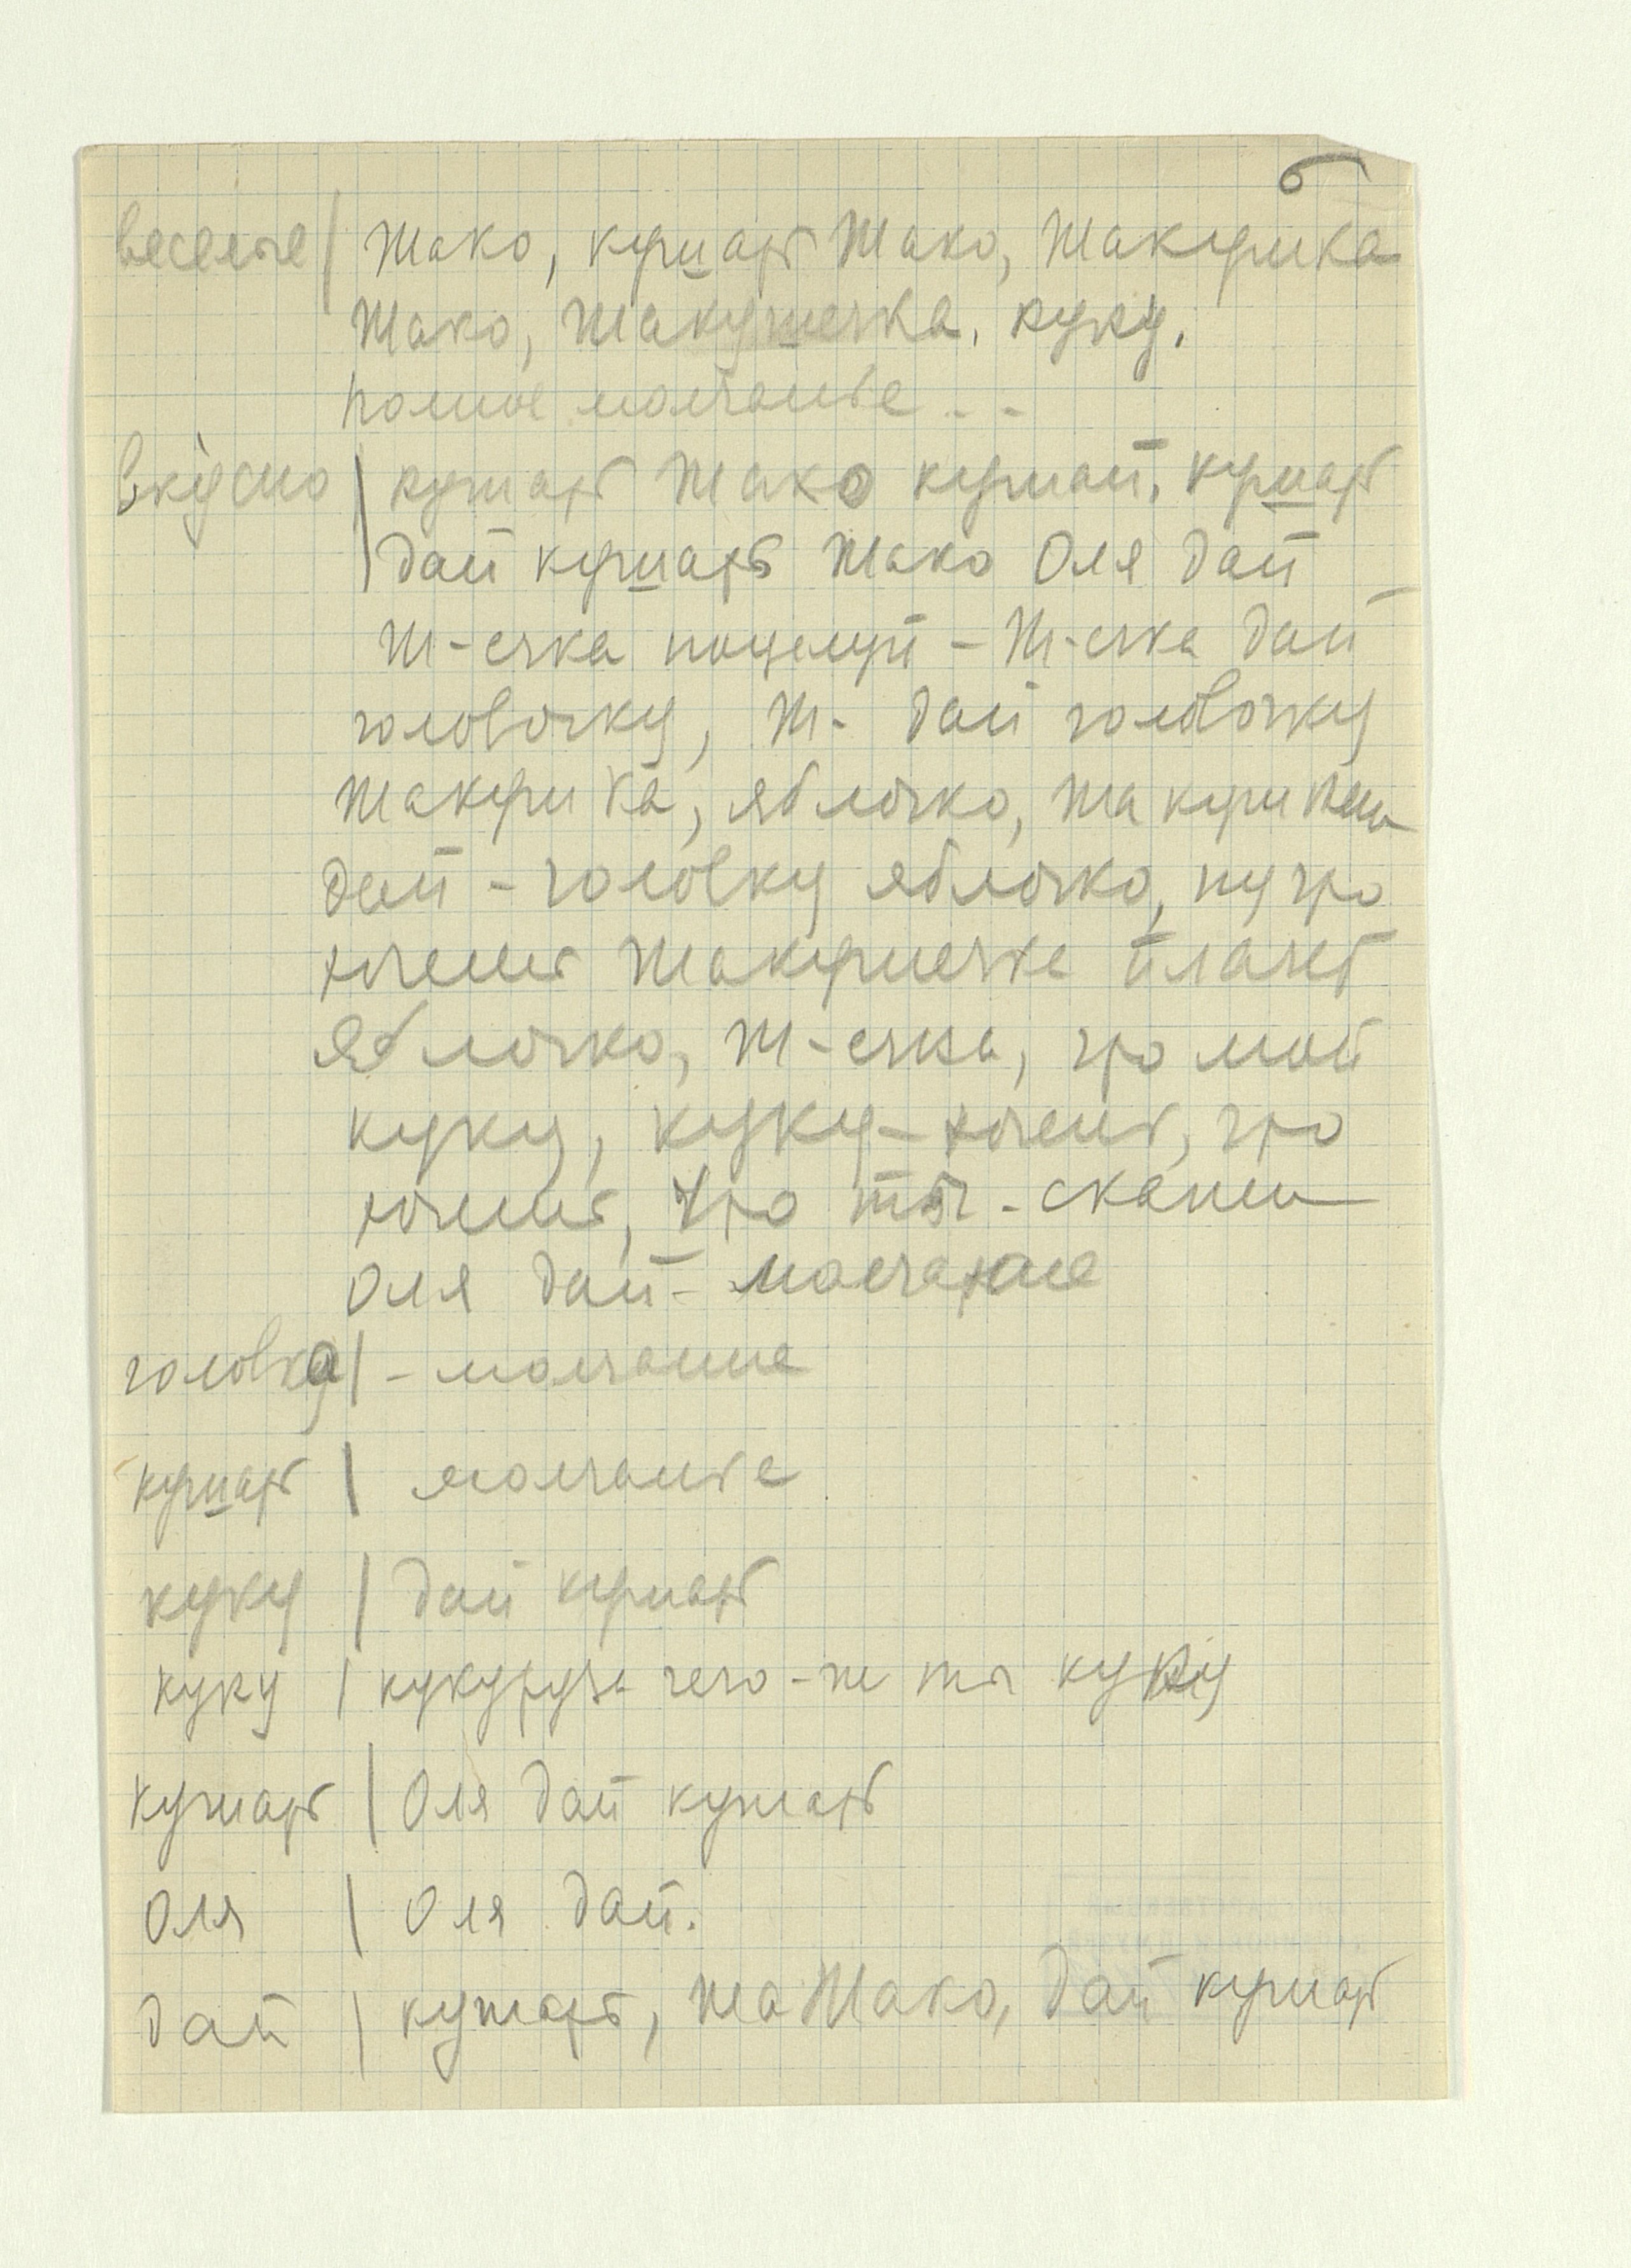 6
веселые | Жако, кушать Жако, Жакушка
Жако, Жакушечка, куку.
полное молчанье - -
вкусно | кушать Жако кушай, кушать
дай кушать Жако Оля дай
Ж-ечка поцелуй - Ж-ечка дай
головочку, Ж- дай головочку
Жакушка, яблочко, Жакушка
дай - головку яблочко, ну что
хочешь Жакушечка плачет
Яблочко, Ж-ечка, что мой
куку, куку - хочешь, что
хочешь, что ты - скажи
Оля дай - молчание
головка | - молчание
кушать | молчанье
куку | дай кушать
куку | кукуруза чего-же ты куку
кушать | Оля дай кушать
Оля | Оля дай.
дай | кушать, жа Жако, дай кушать